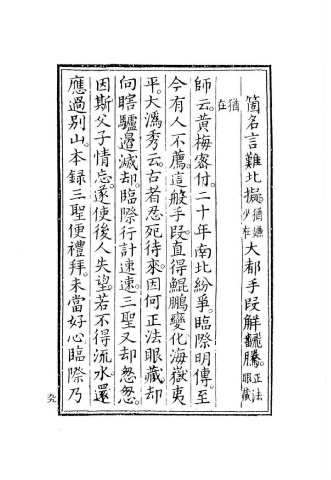 箇名言難比擬。猶嫌少在大都手段解翻騰。正法眼藏
猶在
師云。黃梅密付。二十年南北紛爭。臨際明傳。至
今有人不薦。這般手段。直得鯤鵬變化海嶽夷
平。大溈秀云。古者忍死待來。因何正法眼藏。却
向瞎驢邊滅却。臨際行計速速。三聖又却怱怱。
因斯父子情忘。遂使後人失望。若不得流水。還
應過別山。本錄三聖便禮拜。未當好心。臨際乃
九九